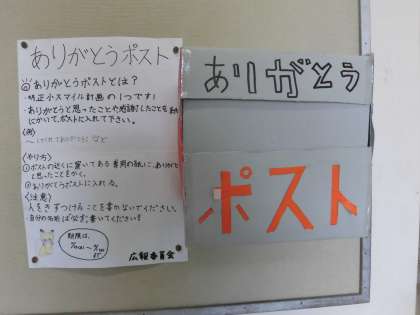 ありがとうポスト
ありがとうポストとは？
・特正小スマイル計画の1つです！
・ありがとうと思ったことや感謝したことを紙
にかいて、ポストに入れて下さい。
〈例〉
〈やり方〉
①ポストの近くに置いてある専用の紙に、ありがと
うと思ったことをかく。
②ありがとうポストに入れる。
〈注意〉
人をきずつけることを書かないでください。
・自分の名前は必ず書いてください！
期限は、
広報委員会
ありがとう
ポスト